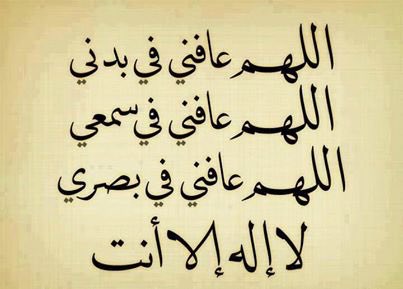 اللهم عافني في بدني
اللهم عافني في سمعي
اللهم عافني في بصري
لا إله إلا أنت